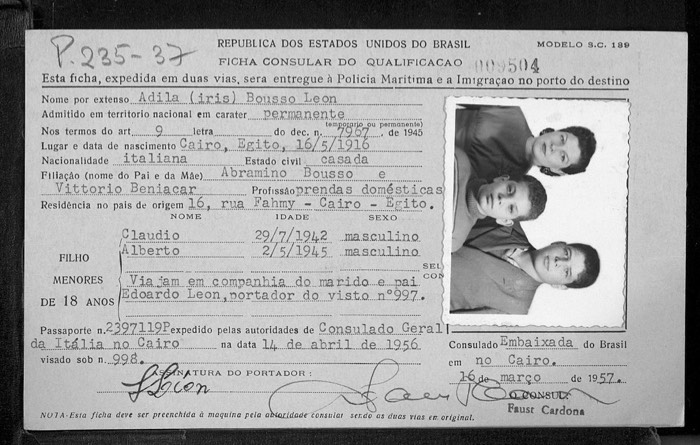 P. 235-37
REPUBLICA DOS ESTADOS UNIDOS DO BRASIL
MODELO S.C. 139
FICHA CONSULAR DO QUALIFICACAO 009504
Esta ficha, expedida em duas vias, sera entregue à Policia Maritima e a Imigraçao no porto do destino
Nome por extenso Adila (iris) Bousso Leon
Admitido em territorio nacional em carater permanente
(temporario ou permanente)
Nos termos do art. 9 letra do dec. n. 7967 de 1945
Lugar e data de nascimento Cairo, Egito, 16/5/1916
Nacionalidade italiana Estado civil casada
Filiação (nome do Pai e da Mãe) Abramino Bousso e
Vittorio Beniacar Profissão prendas domésticas
Residência no pais de origem 16, rua Fahmy - Cairo - Egito.
NOME IDADE SEXO
Claudio 29/7/1942 masculino
Alberto 2/5/1945 masculino
FILHO
MENORES
DE 18 ANOS
SEL
CON
Viajam em companhia do marido e pai
Edoardo Leon, portador do visto nº997.
Passaporte n. 2397119P expedido pelas autoridades de Consulado Geral
da Itália no Cairo na data 14 de abril de 1956
visado sob n. 998.
Consulado Embaixada do Brasil
em no Cairo.
16 de março de 1957.
ASSINATURA DO PORTADOR:
O CONSUL:
Faust Cardona
NOTA-Esta ficha deve ser preenchida à maquina pela autoridade consular sendo as duas vias em original.